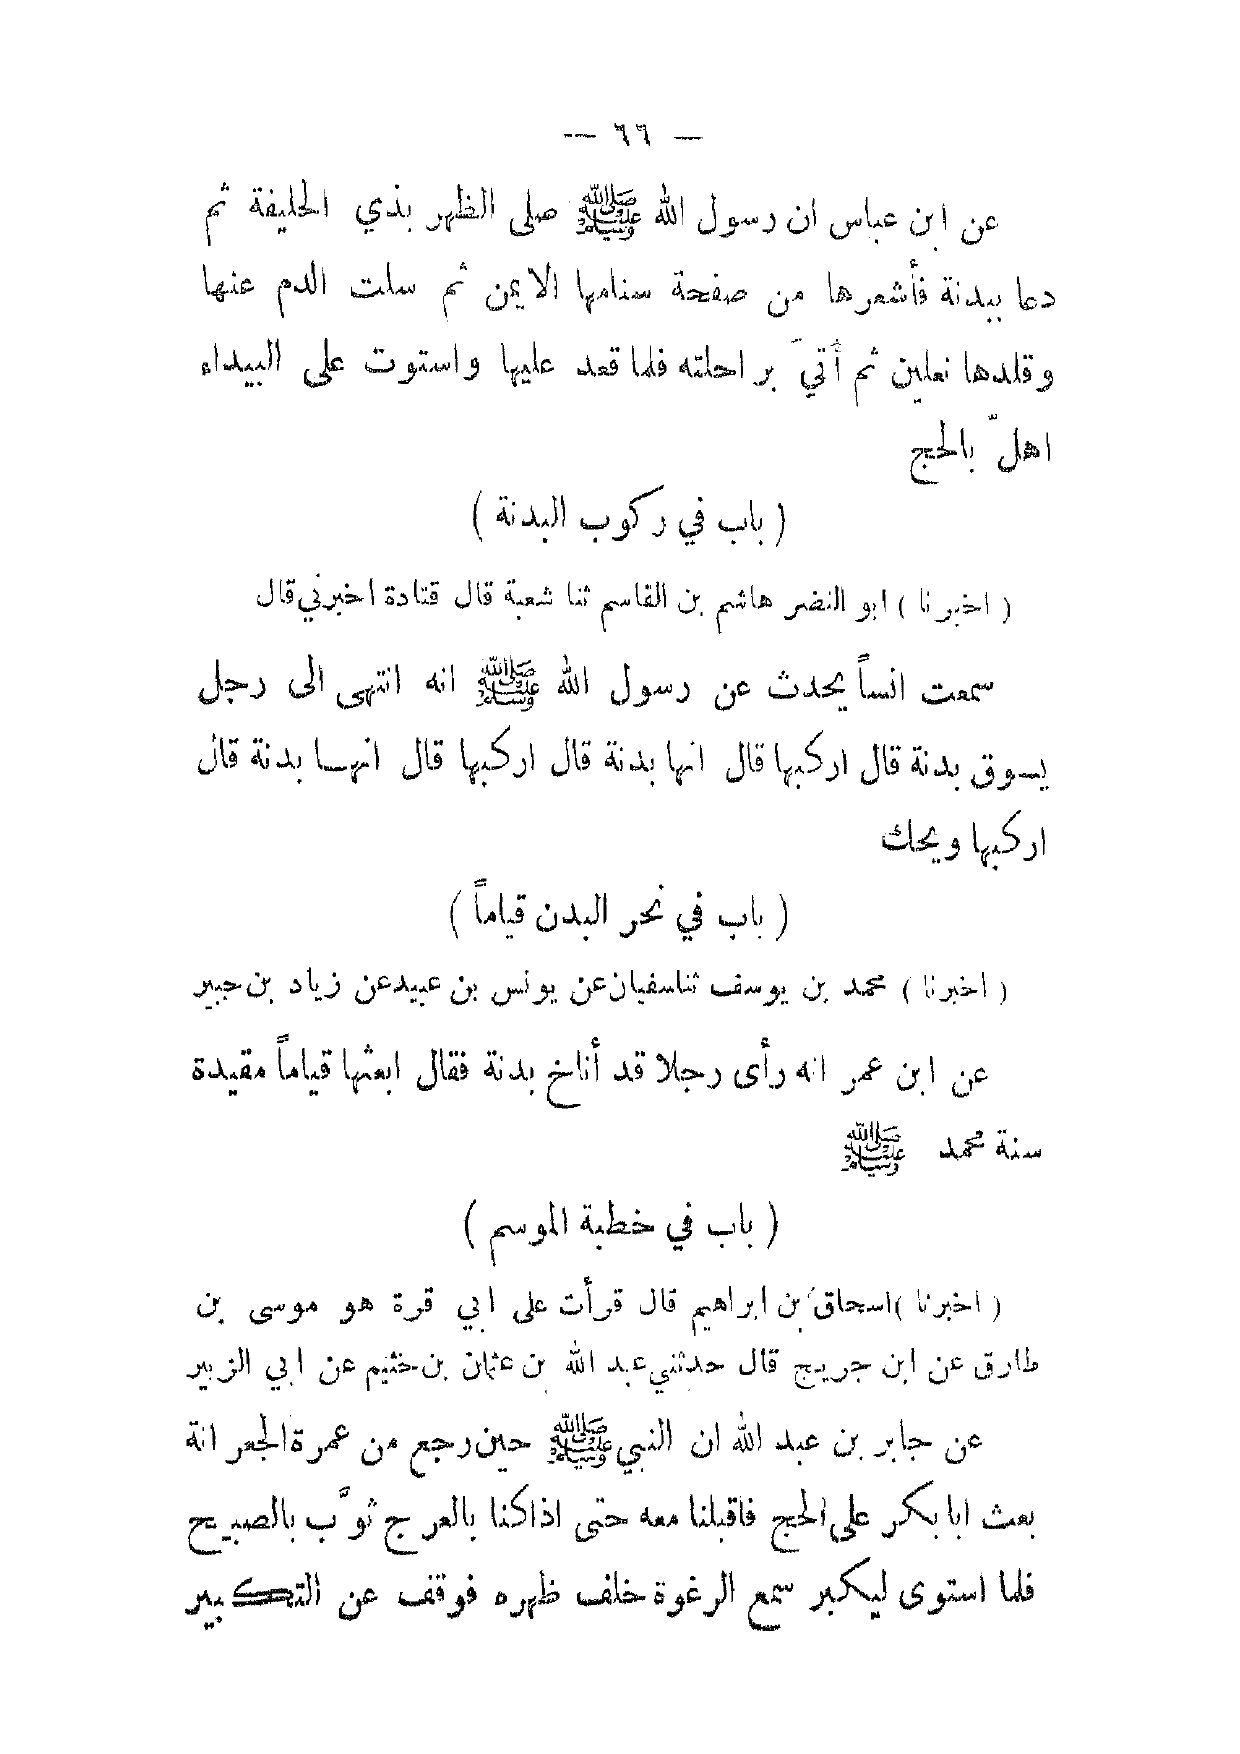 — ٦٦ —
عن ابن عباس ان رسول الله ﷺ صلى الظهر بذي الحليفة ثم
دعا ببدنة فأشعرها من صفحة سنامها الايمن ثم سلت الدم عنها
وقلدها نعلين ثم أتي براحلته فلما قعد عليها واستوت على البيداء
اهلّ بالحج
( باب في ركوب البدنة )
( اخبرنا ) ابو النضر هاشم بن القاسم ثنا شعبة قال قتادة اخبرني قال
سمعت انساً يحدث عن رسول الله ﷺ انه انتهى الى رجل
يسوق بدنة قال اركبها قال انها بدنة قال اركبها قال انها بدنة قال
اركبها ويحك
( باب في نحر البدن قياماً )
( اخبرنا ) محمد بن يوسف ثنا سفيان عن يونس بن عبيد عن زياد بن جبير
عن ابن عمر انه رأى رجلا قد أناخ بدنة فقال ابعثها قياماً مقيدة
سنة محمد ﷺ
( باب في خطبة الموسم )
( اخبرنا ) اسحاق بن ابراهيم قال قرأت على ابي قرة هو موسى بن
طارق عن ابن جريج قال حدثني عبد الله بن عثمان بن خثيم عن ابي الزبير
عن جابر بن عبد الله ان النبي ﷺ حين رجع من عمرة الجعر انة
بعث ابا بكر على الحج فاقبلنا معه حتى اذا كنا بالعرج ثوّب بالصبح
فلما استوى ليكبر سمع الرغوة خلف ظهره فوقف عن التكبير